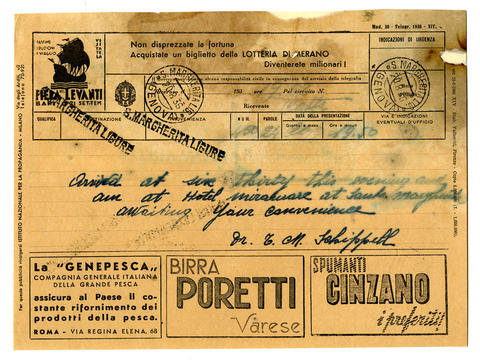 Mod. 30 - Telegr. 1936 - XIV.
Non disprezzate la fortuna
Acquistate un biglietto della LOTTERIA DI MERANO
Diventerete milionari !
INDICAZIONI DI URGENZA
VISITATE LA
FIERA LEVANTI
BARI SETTEM
S. MARGHERITA LIGURE
S. MARGHERITA L
(GENOVA)
Ricevente
QUALIFICA
DESTINAZIONE
PROVENIENZA
NUM.
PAROLE
DATA DELLA PRESENTAZIONE
Giorno e mese
Ore e minuti
VIA E INDICAZIONI
EVENTUALI D'UFFICIO
MARGHERITA LIGURE
S. MARGHERITA LIGURE
Arrived at six thirty this evening and
am at Hotel miramare at Santa margherita
awaiting your convenience
Dr. T. M. Schippell
Per questa pubblicità rivolgersi ISTITUTO NAZIONALE PER LA PROPAGANDA - MILANO
La "GENEPESCA„
COMPAGNIA GENERALE ITALIANA
DELLA GRANDE PESCA
assicura al Paese il co-
stante rifornimento dei
prodotti della pesca.
ROMA - VIA REGINA ELENA, 68
BIRRA
PORETTI
Varese
SPUMANTI
CINZANO
i preferiti!